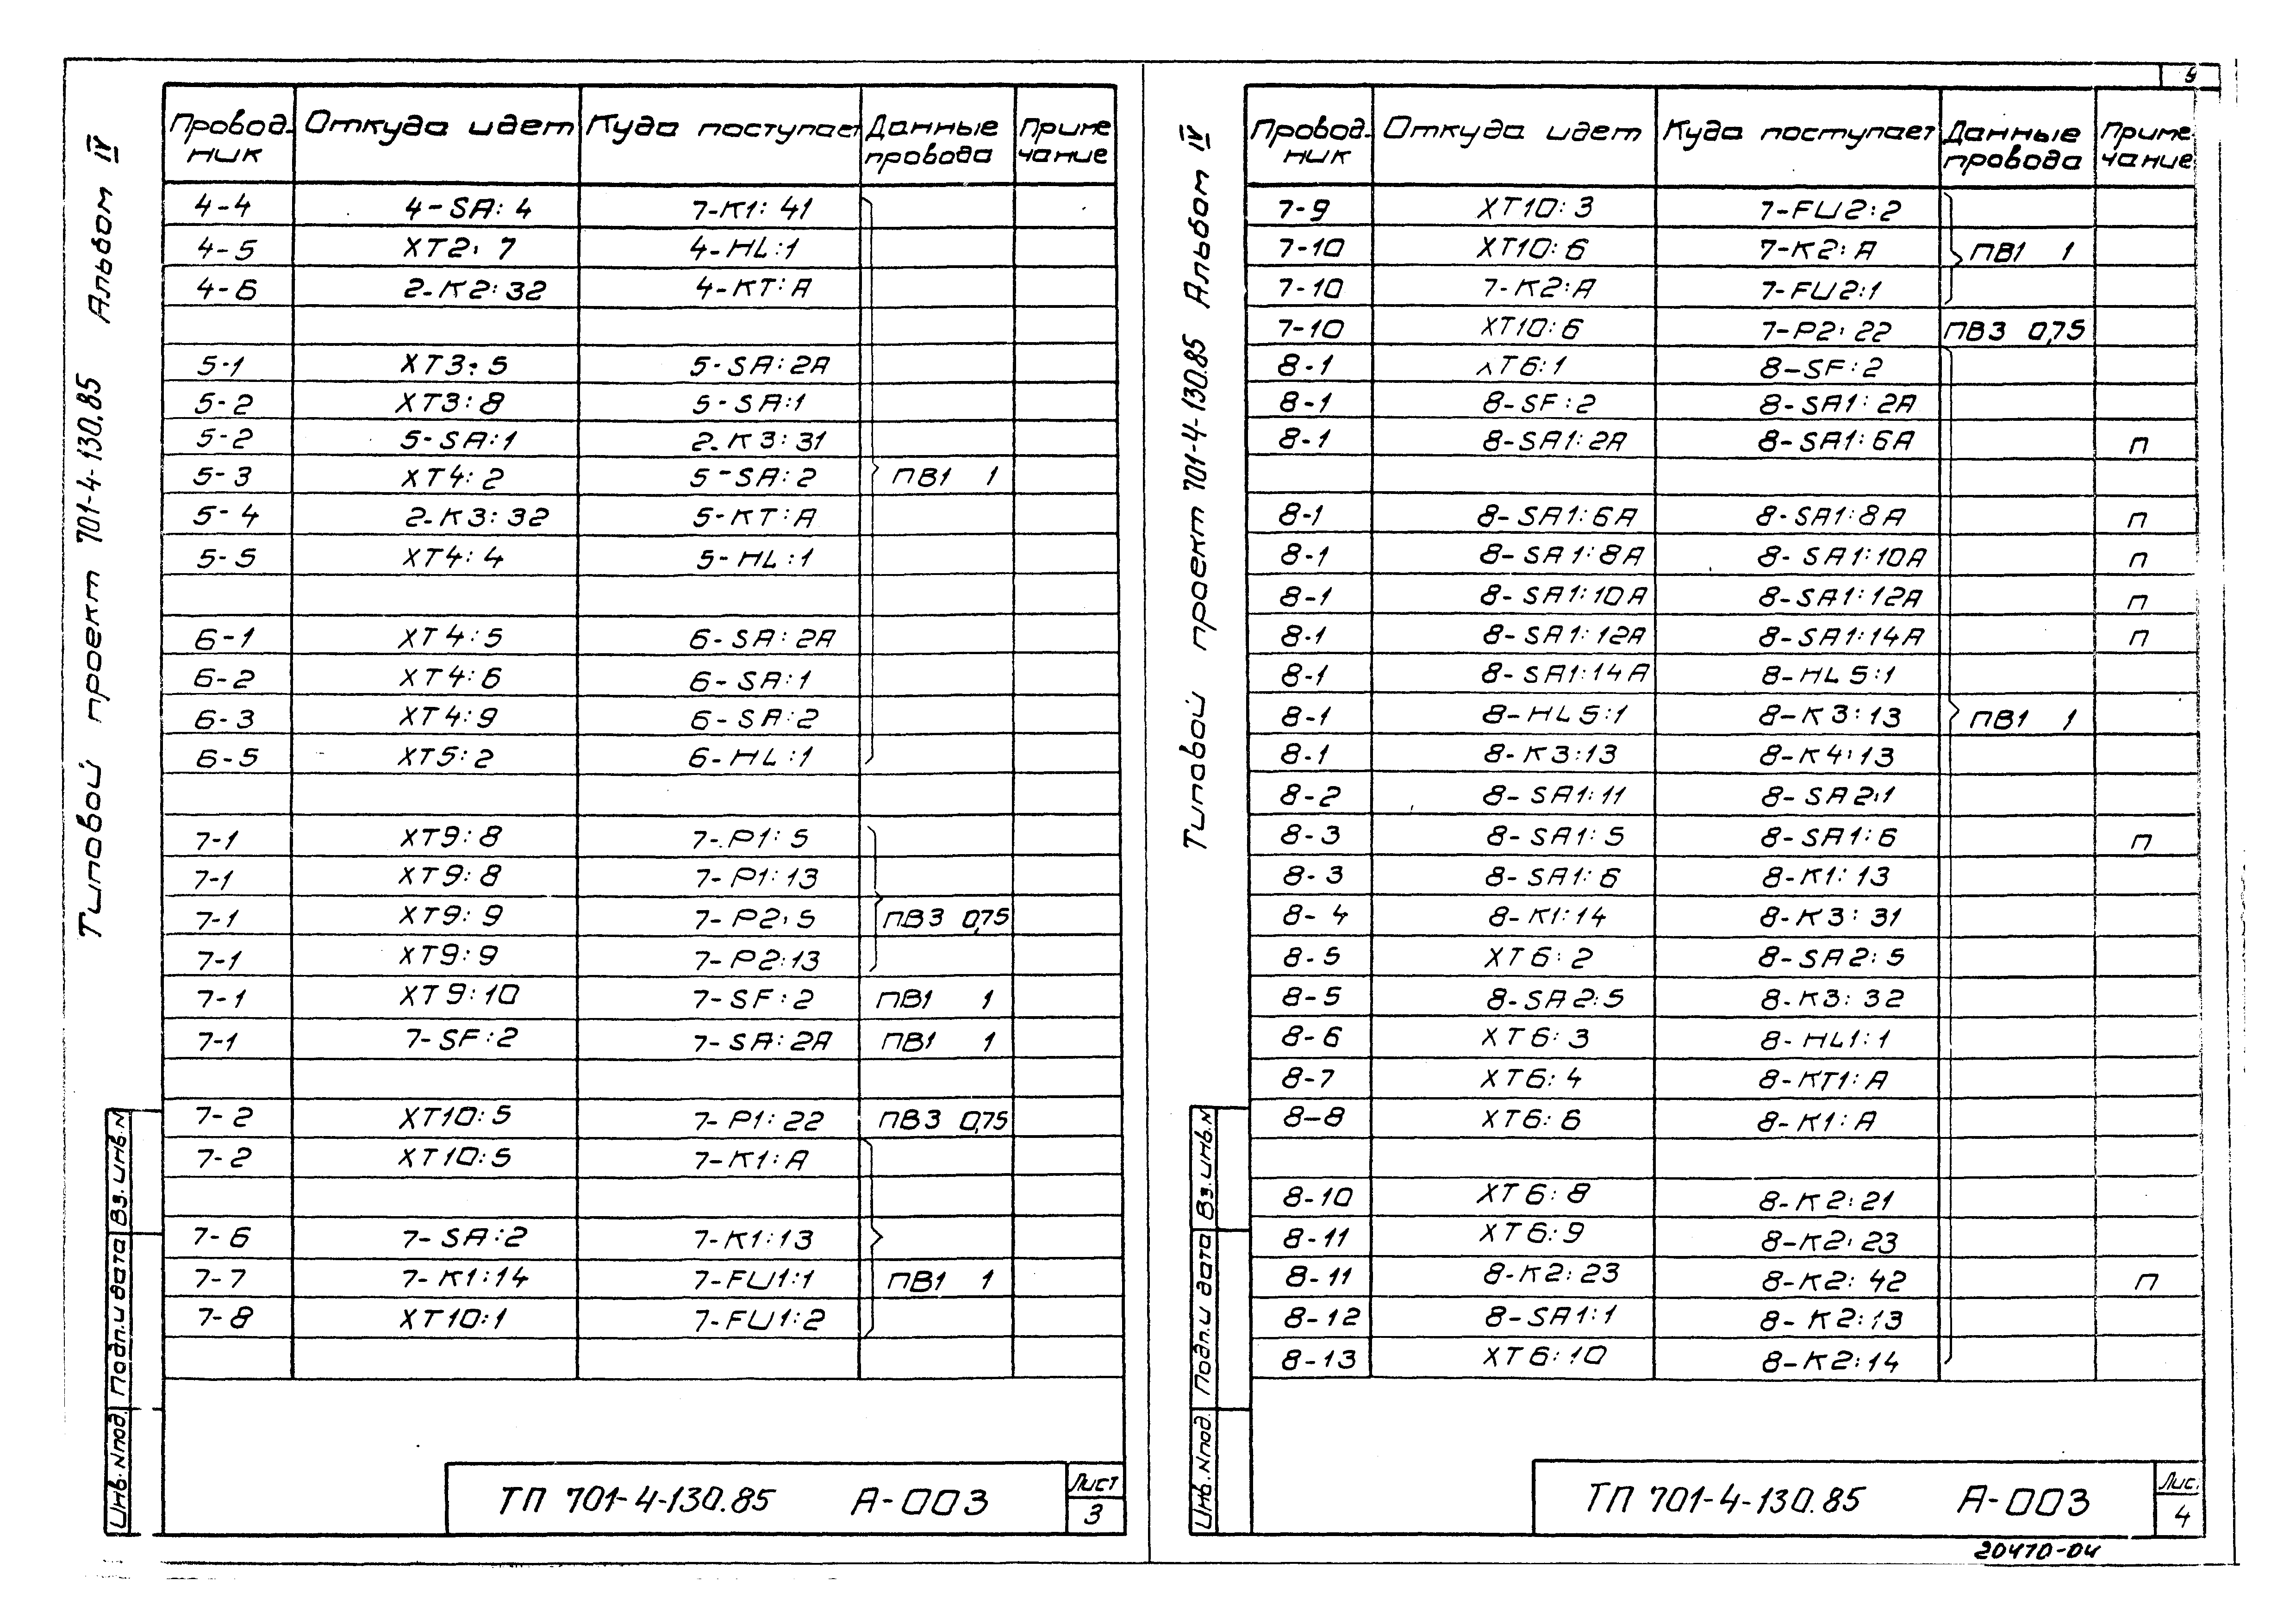 Типовой проект 701-4-130.85 Альбом IV
Провод- ник | Откуда идет | Куда поступает | Данные провода | Приме чание
4-4 4-SA:4 7-K1:41
4-5 XT2:7 4-HL:1
4-6 2-K2:32 4-KT:A
5-1 XT3:5 5-SA:2A
5-2 XT3:8 5-SA:1
5-2 5-SA:1 2-K3:31
5-3 XT4:2 5-SA:2 ПВ1 1
5-4 2-K3:32 5-KT:A
5-5 XT4:4 5-HL:1
6-1 XT4:5 6-SA:2A
6-2 XT4:6 6-SA:1
6-3 XT4:9 6-SA:2
6-5 XT5:2 6-HL:1
7-1 XT9:8 7-P1:5
7-1 XT9:8 7-P1:13
7-1 XT9:9 7-P2:5 ПВ3 0,75
7-1 XT9:9 7-P2:13
7-1 XT9:10 7-SF:2 ПВ1 1
7-1 7-SF:2 7-SA:2A ПВ1 1
7-2 XT10:5 7-P1:22 ПВ3 0,75
7-2 XT10:5 7-K1:A
7-6 7-SA:2 7-K1:13
7-7 7-K1:14 7-FU1:1 ПВ1 1
7-8 XT10:1 7-FU1:2
Инв.N под. Подп.и дата Вз.инв.N
ТП 701-4-130.85 А-003
Лист
3
9
Типовой проект 701-4-130.85 Альбом IV
Провод- ник | Откуда идет | Куда поступает | Данные провода | Приме чание
7-9 XT10:3 7-FU2:2
7-10 XT10:6 7-K2:A ПВ1 1
7-10 7-K2:A 7-FU2:1
7-10 XT10:6 7-P2:22 ПВ3 0,75
8-1 XT6:1 8-SF:2
8-1 8-SF:2 8-SA1:2A
8-1 8-SA1:2A 8-SA1:6A п
8-1 8-SA1:6A 8-SA1:8A п
8-1 8-SA1:8A 8-SA1:10A п
8-1 8-SA1:10A 8-SA1:12A п
8-1 8-SA1:12A 8-SA1:14A п
8-1 8-SA1:14A 8-HL5:1
8-1 8-HL5:1 8-K3:13 ПВ1 1
8-1 8-K3:13 8-K4:13
8-2 8-SA1:11 8-SA2:1
8-3 8-SA1:5 8-SA1:6 п
8-3 8-SA1:6 8-K1:13
8-4 8-K1:14 8-K3:31
8-5 XT6:2 8-SA2:5
8-5 8-SA2:5 8-K3:32
8-6 XT6:3 8-HL1:1
8-7 XT6:4 8-KT1:A
8-8 XT6:6 8-K1:A
8-10 XT6:8 8-K2:21
8-11 XT6:9 8-K2:23
8-11 8-K2:23 8-K2:42 п
8-12 8-SA1:1 8-K2:13
8-13 XT6:10 8-K2:14
Инв.N под. Подп.и дата Вз.инв.N
ТП 701-4-130.85 А-003
Лис.
4
20470-04